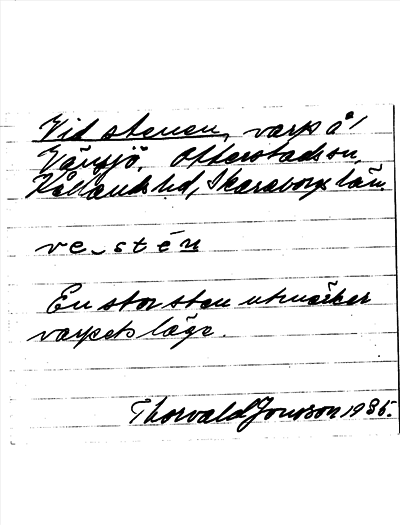 Vid stenen, varp å
Vänsjö, Otterstads sn,
Kållands hd, Skaraborgs län.
ve_stén
En stor sten utmärker
varpets läge.
Thorvald Jonsson 1935.